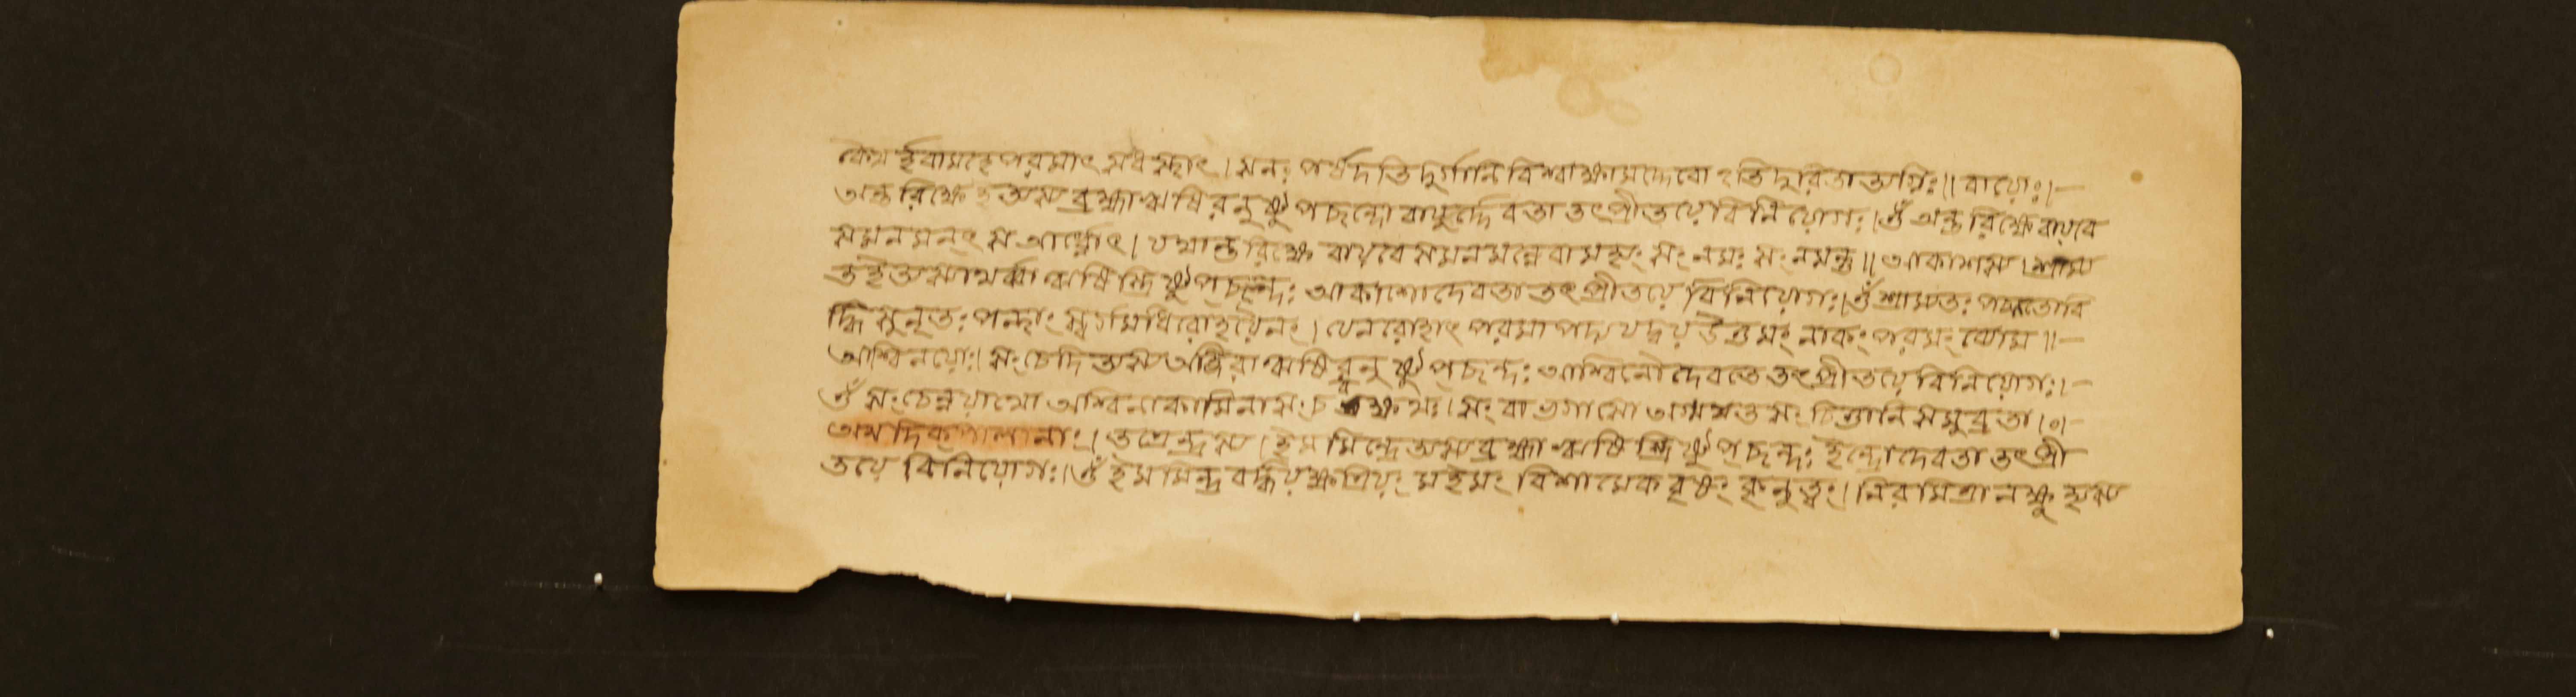 বেথর্হবামহেপরমাৎ সধস্থাৎ। সনঃ পর্ষদতি দুর্গানি বিশ্বাক্ষামদ্দেবোঽতিদুরিতাত্যগ্নিঃ॥ বায়োঃ।—
অন্তরিক্ষে ইত্যস্য ব্রহ্মাঋষিরনুষ্টুপছন্দো বায়ুর্দ্দেবতা তৎপ্রীতয়ে বিনিয়োগঃ। ওঁ অন্তরিক্ষে বায়বে
সমনমনংস আর্ধ্নোৎ। যথান্তরিক্ষে বায়বে সমনমন্নেবামহ্যং সং নমঃ সং নমন্তু॥ আকাশস্য। শ্রাম্য
তইত্যস্যাথর্ব্বাঋষিস্ত্রিষ্টুপ্ছন্দঃ আকাশোদেবতা তৎপ্রীতয়ে বিনিয়োগঃ। ওঁ শ্রাম্যতঃ পচতোবি
দ্ধি সুনৃতঃ পন্থাং স্বর্গমধিরোহয়ৈনং। যেনরোহাৎ পরমাপদ্য যদ্বয় উত্তমং নাকং পরমং ব্যোম॥—
আশ্বিনয়োঃ। সং চেদিত্যস্য অঙ্গিরাঋষিরনুষ্টুপ্ছন্দঃ আশ্বিনৌ দেবতে তৎপ্রীতয়ে বিনিয়োগঃ।—
ওঁ সং চেন্নয়াথো অশ্বিনাকামিনাসং চ বক্ষথঃ। সং বাভগাসো অগ্মতত সং চিত্তানি সমুব্রতা।০।—
অথ দিক্পালানাং। তত্রেন্দ্রস্য। ইমমিন্দ্রেত্যস্য ব্রহ্মাঋষিস্ত্রিষ্টুপ্ছন্দঃ ইন্দ্রোদেবতা তৎপ্রী
তয়ে বিনিয়োগঃ। ওঁ ইমমিন্দ্র বর্দ্ধয়ক্ষত্রিয়ং মইমং বিশামেকবৃষং কৃনুত্বং। নিরমিত্রানক্ষ্ণুহ্যস্য